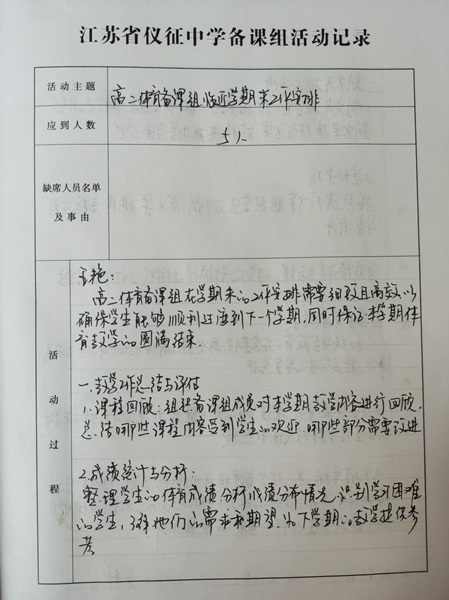 江苏省仪征中学备课组活动记录
活动主题
高二体育备课组临近学期末工作安排
应到人数
5人
缺席人员名单
及事由
活动过程
高二体育备课组在学期末的工作安排需要细致且高效,以
确保学生能够顺利过渡到下一个学期,同时保证本学期体
育教学的圆满结束.
一.教学工作总结与评估
1.课程回顾:组织备课组成员对本学期教学内容进行回顾,
总结哪些课程内容受到学生的欢迎,哪些部分需要改进
2.成绩统计与分析:
整理学生的体育成绩,分析成绩分布情况,识别学习困难
的学生,了解他们的需求和期望,为下学期的教学提供参
考